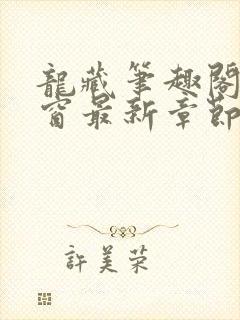 龍藏筆趣閣
窗最新章節
許美榮